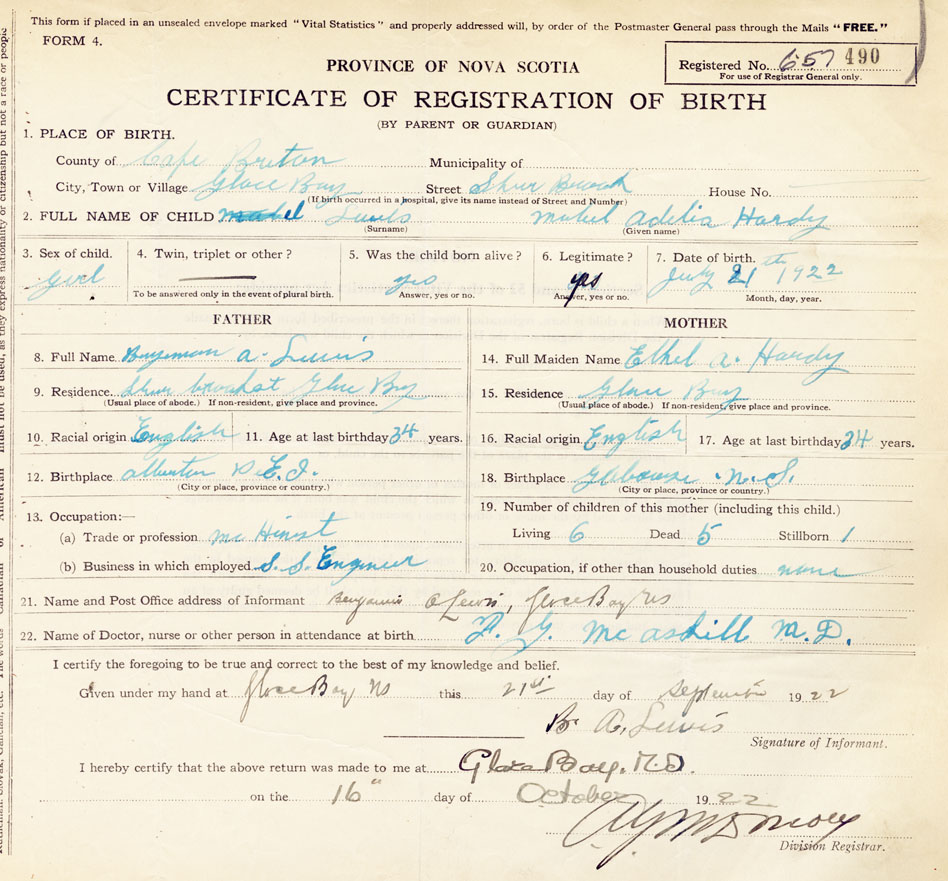 This form if placed in an unsealed envelope marked "Vital Statistics" and properly addressed will, by order of the Postmaster General pass through the Mails "FREE."
FORM 4.
Registered No. 657 490
For use of Registrar General only.
PROVINCE OF NOVA SCOTIA
CERTIFICATE OF REGISTRATION OF BIRTH
(BY PARENT OR GUARDIAN)
1. PLACE OF BIRTH.
County of Cape Breton Municipality of
City, Town or Village Glace Bay Street House No.
(If birth occurred in a hospital, give its name instead of Street and Number)
2. FULL NAME OF CHILD Mabel Lewis Mabel Adelia Hardy
(Surname) (Given name)
3. Sex of child. 4. Twin, triplet or other? 5. Was the child born alive? 6. Legitimate? 7. Date of birth.
Girl yes yes July 21 th 1922
To be answered only in the event of plural birth. Answer, yes or no. Answer, yes or no. Month, day, year.
FATHER MOTHER
8. Full Name A. Lewis 14. Full Maiden Name Ethel A. Hardy
9. Residence Glace Bay 15. Residence Glace Bay
(Usual place of abode.) If non-resident, give place and province. (Usual place of abode.) If non-resident, give place and province.
10. Racial origin English 11. Age at last birthday 34 years. 16. Racial origin English 17. Age at last birthday 34 years.
12. Birthplace Alberton P.E.I. 18. Birthplace N.S.
(City or place, province or country.) (City or place, province or country.)
13. Occupation:— 19. Number of children of this mother (including this child.)
(a) Trade or profession Living 6 Dead 5 Stillborn 1
(b) Business in which employed S.S. Engineer 20. Occupation, if other than household duties none
21. Name and Post Office address of Informant Benjamin A Lewis, Glace Bay NS
22. Name of Doctor, nurse or other person in attendance at birth. McAskill M.D.
I certify the foregoing to be true and correct to the best of my knowledge and belief.
Given under my hand at Glace Bay NS this 21st day of September 1922
B. A. Lewis
Signature of Informant.
I hereby certify that the above return was made to me at Glace Bay. N.S.
on the 16" day of October 1922
Division Registrar.